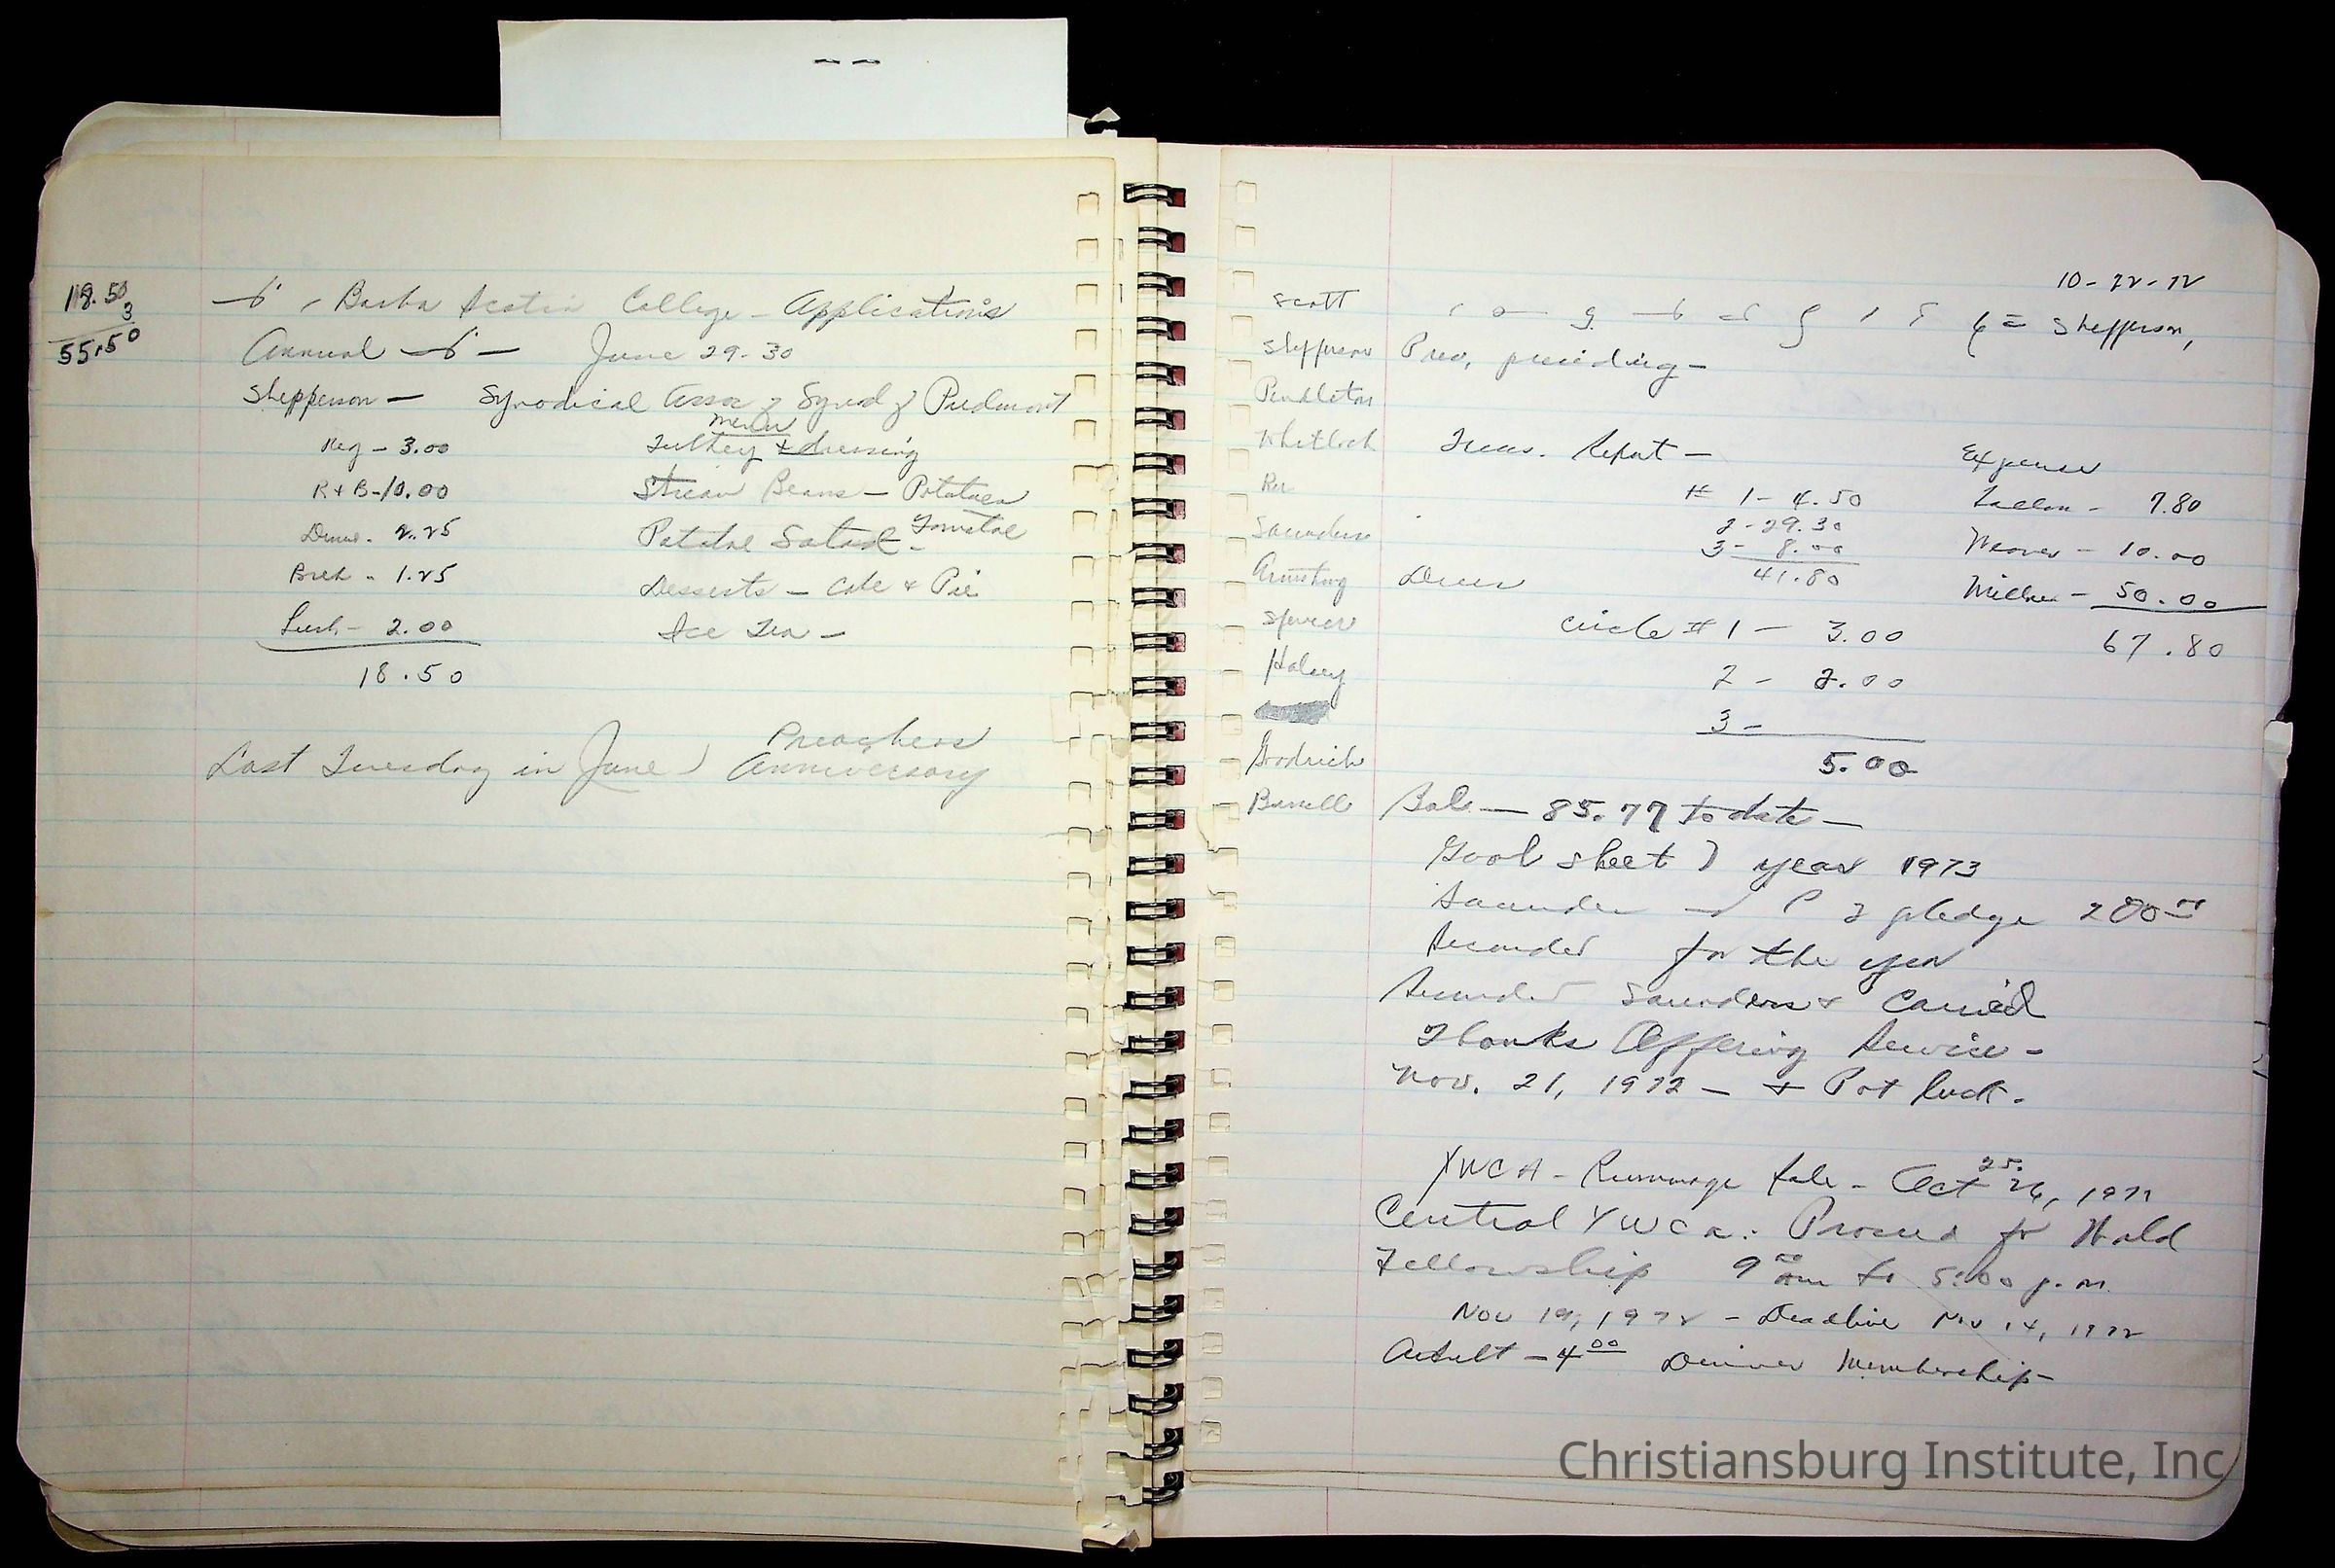 18.50
3
55.50
Barba Scotia College - Applications
Annual June 29-30
Shepperson - Synodical Assoc Synod Piedmont
Menu
Reg - 3.00 Turkey & dressing
R + B - 10.00 String Beans - Potatoes
Dinne. 2.25 Potatoe Salad - Tomatoe
Brek - 1.25 Desserts - Cake + Pie
Lunch - 2.00 Ice Tea -
18.50
Preachers
Last Tuesday in June Anniversary
10-22-72
Scott
= Shepperson,
Shepperson Pres, presiding -
Pendleton
Whitlock Treas. Report - Expense
Rev # 1 - 4.50 7.80
Saunders 2 - 29.30
3 - 8.00 Weaver - 10.00
Armstrong Dues 41.80 50.00
Spencer Circle # 1 - 3.00 67.80
Halsey 2 - 2.00
3 -
Goodrich 5.00
Burrell Bal. - 85.77 to date -
Goal sheet year 1973
Saunders pledge 200.00
Seconded for the year
Seconded Saunders + Carried
Thanks Offering Service -
Nov. 21, 1972 - + Pot luck.
YWCA - Rummage Sale - Oct 25, 26, 1972
Central YWCA. Proceed for World
Fellowship 9 00 am to 5:00 p.m.
Nov 19, 1972 - Deadline Nov 14, 1972
Adult - 4 00 Dinner Membership -
Christiansburg Institute, Inc